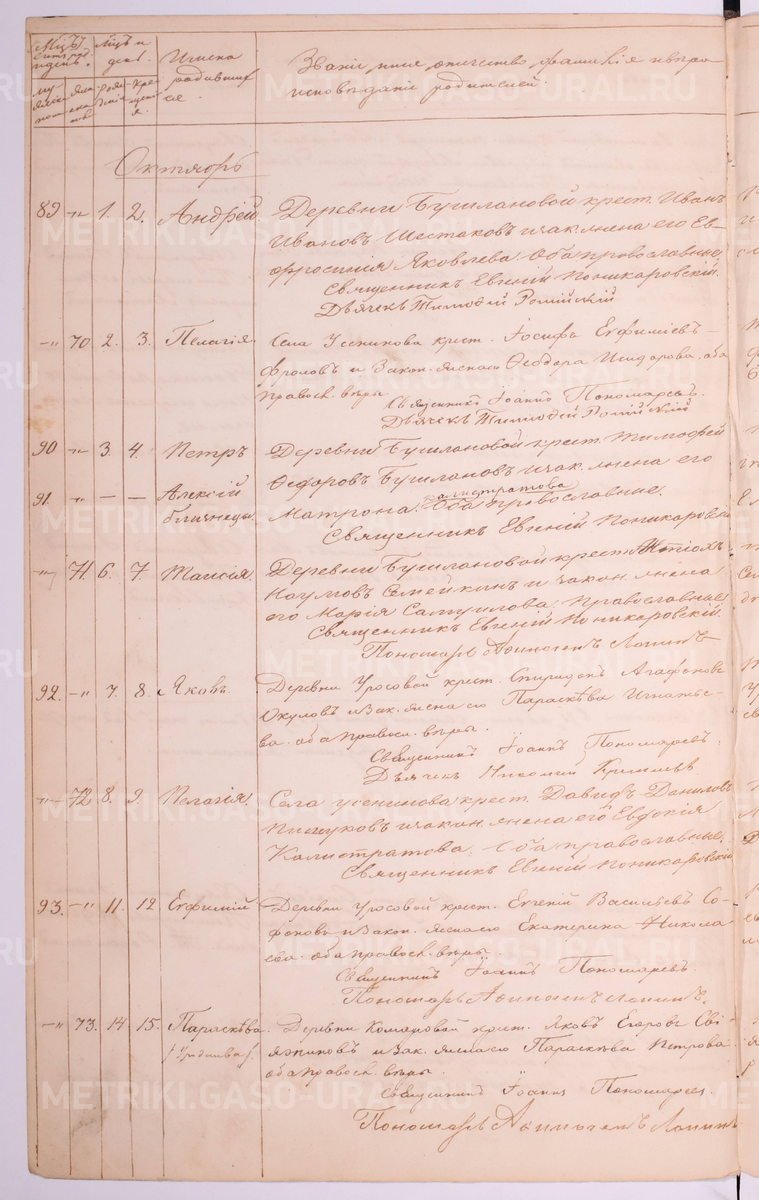 Мѣсяцъ и день.
Имена родившихся.
Званіе имя отчество фамилія и вѣро
исповѣданіе родителей.
Октябрь
89 -"- 1. 2. Андрей Деревни Бушлановой крест. Иванъ
Ивановъ Шестаковъ и зак. жена его Ев-
фросинія Яковлева Оба православные,
Священникъ Евгеній Поникаровскій.
Дьячекъ Тимофей
-"- 70. 2. 3. Пелагія. Села Усенинова крест. Іосифъ Евфиміевъ
Фроловъ и Закон. жена его Ѳеодора Исидорова, оба
Правосл. вѣры.
Священникъ Іоаннъ Пономаревъ.
Дьячекъ Тимофей
90 -"- 3. 4. Петръ Деревни Бушлановой крест. Тимофей
Ѳедоровъ Бушлановъ и зак. жена его
91. -"- — — Алексій
близнецы. Матрона Калистратова Оба православные.
Священникъ Евгеній Поникаровскій
-"- 71. 6. 7. Таисія. Деревни Бушлановой крест.
Наумовъ Семейкинъ и закон. жена
его Марія Самуилова. православные
Священникъ Евгеній Поникаровскій.
Пономарь Лопинъ
92. -"- 7. 8. Яковъ. Деревни Уросовой крест. Спиридонъ Агафоновъ
Окуловъ и Зак. жена его Параскѣва Игнатье-
ва. оба правосл. вѣры.
Священникъ Іоаннъ Пономаревъ.
Дьячекъ Николай
-"- 72. 8. 9. Пелагія. Села Усенинова крест. Давидъ Даниловъ
Пищуковъ и закон. жена его Евдокія
Калистратова. оба православные.
Священникъ Евгеній Поникаровскій
93. -"- 11. 12 Евфимій Деревни Уросовой крест. Евгеній Васильевъ Со-
фоновъ и Закон. жена его Екатерина Никола
ева. оба правосл. вѣры.
Священникъ Іоаннъ Пономаревъ.
Пономарь Лопинъ.
-"- 73. 14. 15. Параскѣва. Деревни Комаровой крест. Яковъ Егоровъ Сві-
яжниковъ и Зак. жена его Параскѣва Петрова
оба Правосл. вѣры.
Священникъ Іоаннъ Пономаревъ.
Пономарь Лопинъ
METRIKI.GASO-URAL.RU